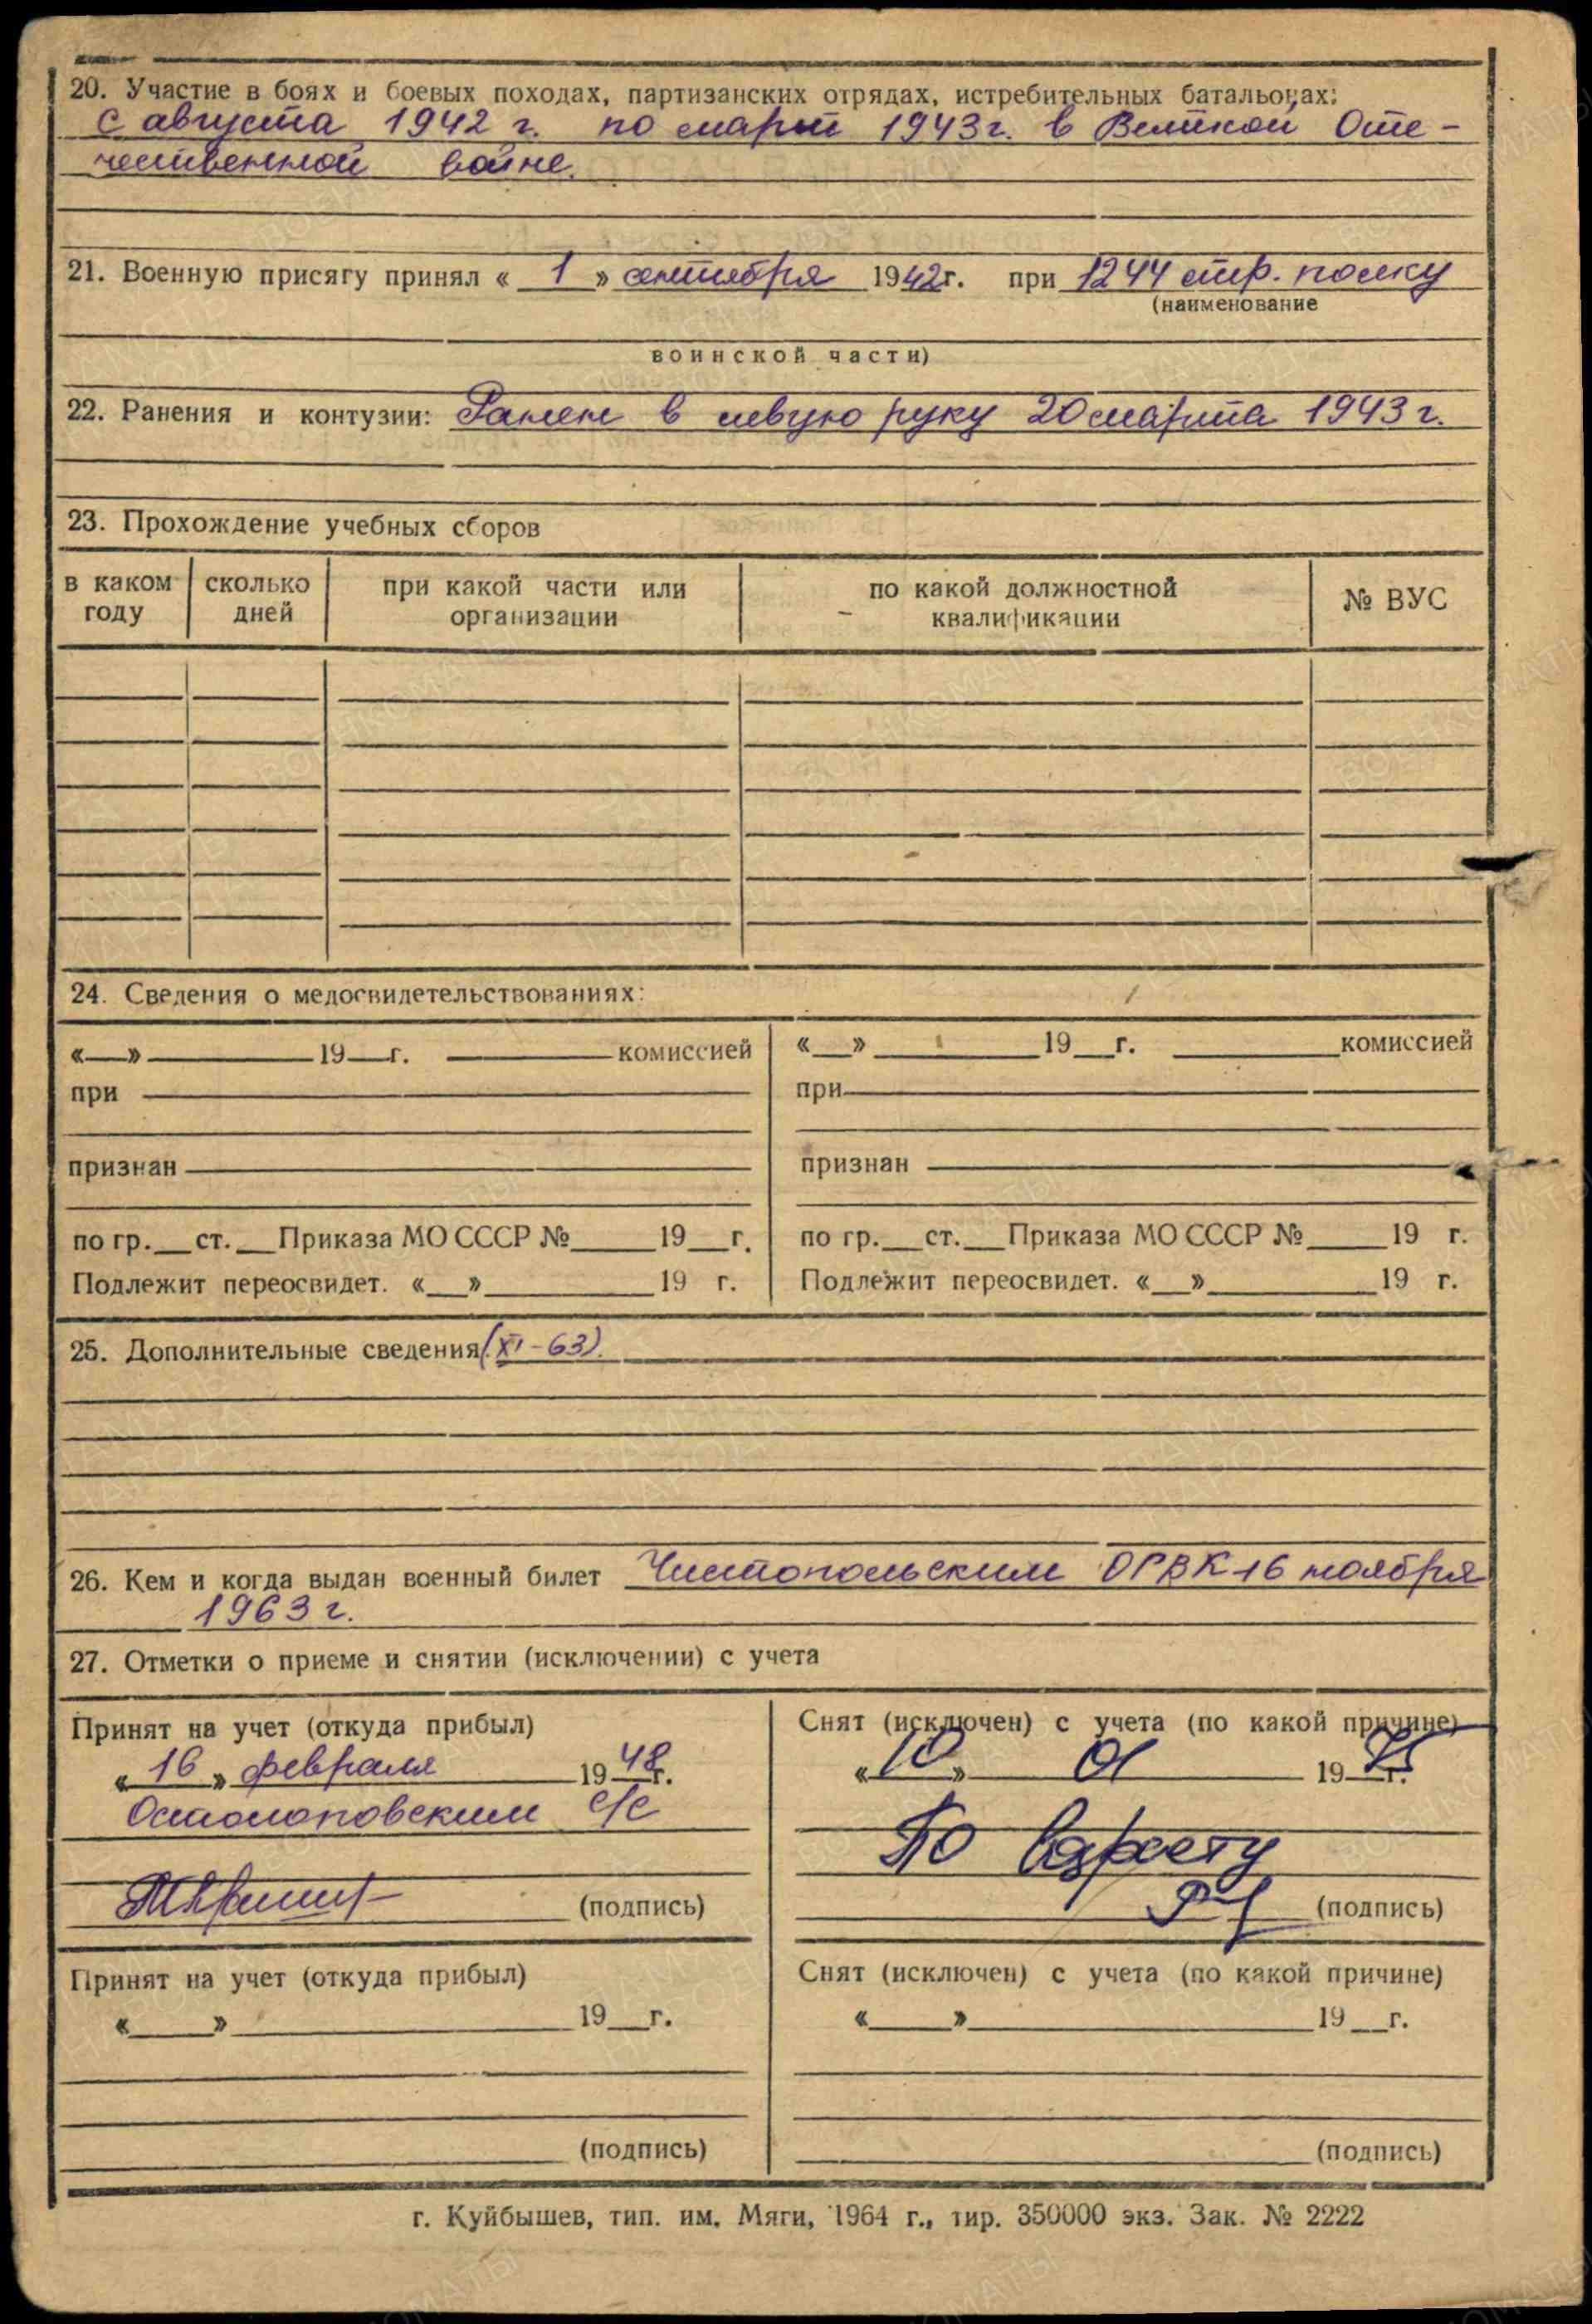 20. Участие в боях и боевых походах, партизанских отрядах, истребительных батальонах:
с августа 1942 г. по март 1943 г. в Великой Оте-
чественной войне.
21. Военную присягу принял « 1 » сентября 1942 г. при 1244 стр. полку
(наименование
воинской части)
22. Ранения и контузии: Ранен в левую руку 20 марта 1943 г.
23. Прохождение учебных сборов
в каком году сколько дней при какой части или организации по какой должностной квалификации № ВУС
24. Сведения о медосвидетельствованиях:
«__»____ 19__г. ____ комиссией
при
признан
по гр.__ ст.__ Приказа МО СССР №____ 19__г.
Подлежит переосвидет. «__»____ 19 г.
«__»____ 19__г. ____ комиссией
при
признан
по гр.__ ст.__ Приказа МО СССР №____ 19 г.
Подлежит переосвидет. «__»____ 19 г.
25. Дополнительные сведения (XI-63).
26. Кем и когда выдан военный билет Чистопольским ОРВК 16 ноября
1963 г.
27. Отметки о приеме и снятии (исключении) с учета
Принят на учет (откуда прибыл)
« 16 » февраля 1948 г.
Остолоповским с/с
(подпись)
Снят (исключен) с учета (по какой причине)
« 10 » 01 1975 г.
По возрасту
(подпись)
Принят на учет (откуда прибыл)
«____»____ 19__г.
(подпись)
Снят (исключен) с учета (по какой причине)
«____»____ 19__г.
(подпись)
г. Куйбышев, тип. им. Мяги, 1964 г., тир. 350000 экз. Зак. № 2222